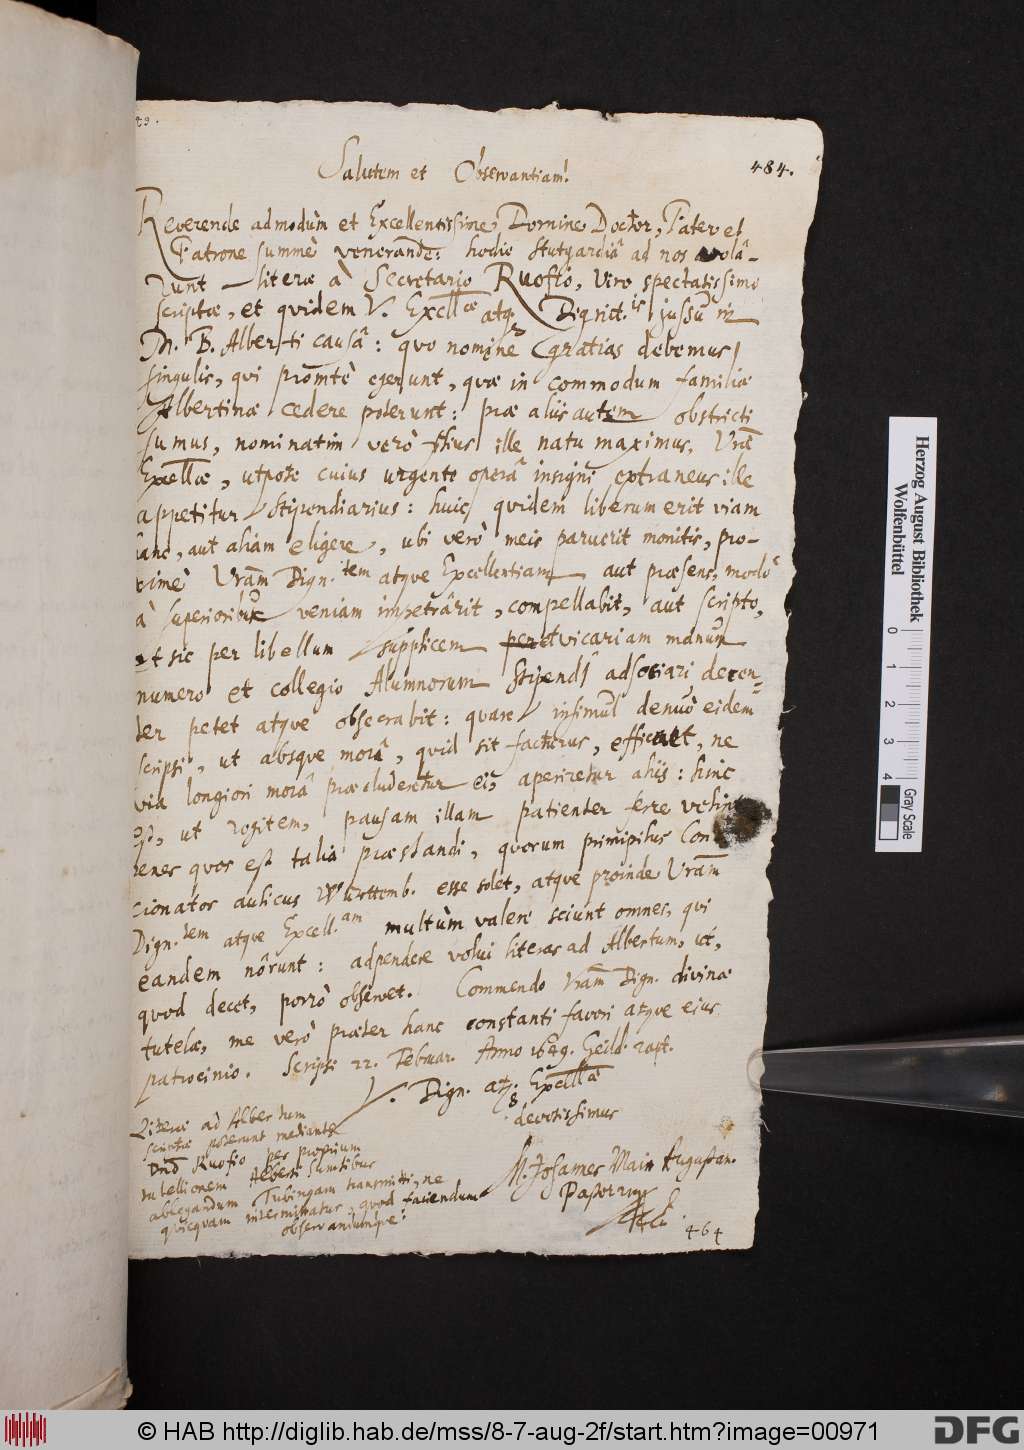 484.
Salutem et Observantiam!
Reverende admodùm et Excellentissime Domine Doctor, Pater et
Patrone summè venerande: hodie Stutgardiâ ad nos volâ-
runt literæ à Secretario Ruofio, viro spectatissimo
scriptæ, et quidem V. Excellæ atq Dignit.is jussu in
M. B. Alberti causâ: quo nomine gratias debemus
singulis, qui promtè egerunt, quæ in commodum familiæ
Albertinæ cedere poterunt: præ aliis autem obstricti
sumus, nominatim verò filius ille natu maximus, Vræ
Excellæ, utpote cuius urgente operâ insigni extraneus ille
appetitur Stipendiarius: huic quidem liberum erit viam
hanc, aut aliam eligere, ubi verò meis paruerit monitis, pro-
ximè Vram Dign.tem atque Excellentiam aut præsens, modò
à Superioribus veniam impetrârit, compellabit, aut scripto,
et sic per libellum supplicem vicariam manum
numero et collegio Alumnorum Stipendj adsociari decen-
ter petet atque obsecrabit: quare insimul denuò eidem
scripsi, ut absque morâ, quid sit facturus, efficiat, ne
via longiori morâ præcluderetur ei, aperiretur aliis: hinc
est, ut rogitem, pausam illam patienter ferre velint
penes quos est talia præstandi, quorum primipilus Con
cionator aulicus Württemb. esse solet, atque proinde Vram
Dign.tem atque Excell.am multùm valere sciunt omnes, qui
eandem nôrunt: adpendere volui literas ad Albertum, ut,
quod decet, porrò observet. Commendo Vram Dign. divinæ
tutelæ, me verò præter hanc constanti favori atque ejus
patrocinio. Scripsi 22. Februar. Anno 1649. Geild. rapt.
V. Dign. atq. Excellæ
devotissimus
M. Johannes Main Augustan.
Pastor
Literæ ad Albertum
scriptæ poterunt mediante
Dno Ruofio per proprium
tabellionem Alberti sumtibus
ablegandum Tubingam transmitti, ne
quicquam intermittatur, quod faciendum
observandumque:
464
Herzog August Bibliothek
Wolfenbüttel
0 1 2 3 4
Gray Scale
© HAB http://diglib.hab.de/mss/8-7-aug-2f/start.htm?image=00971
DFG